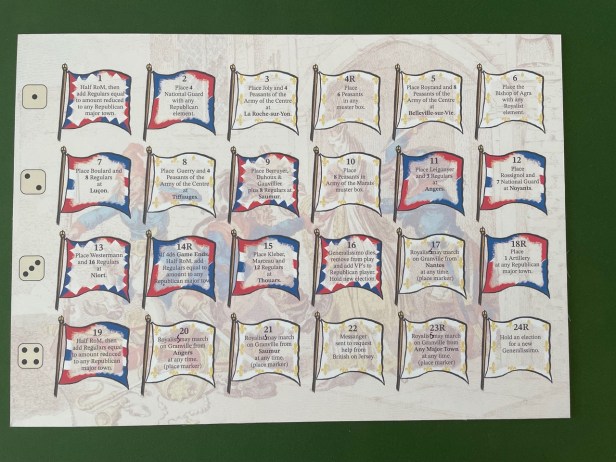 1
Half RoM, then
add Regulars equal
to amount reduced
to any Republican
major town.
2
Place 4
National Guard
with any
Republican
element.
3
Place Joly and 4
Peasants of the
Army of the Centre
at
La Roche-sur-Yon.
4R
Place
4 Peasants
in any
muster box.
5
Place Royrand and 8
Peasants of the
Army of the Centre
at
Belleville-sur-Vie.
6
Place
the
Bishop of Agra
with any
Royalist
element.
7
Place Boulard and
8 Regulars
at
Luçon.
8
Place Guerry and 4
Peasants of the
Army of the Centre
at
Tiffauges.
9
Place Berruyer,
Duhoux &
Gauvillier
plus 8 Regulars at
Saumur.
10
Place
8 Peasants in
Army of the Marais
muster box.
11
Place Leigonyer
and 7 Regulars
at
Angers.
12
Place
Rossignol and
7 National Guard
at Noyants.
13
Place Westermann
and 16 Regulars
at
Niort.
14R
If 40+ Game Ends.
Half RoM, add
Regulars equal to
amount to any
Republican major town.
15
Place Kleber,
Marceau and
12 Regulars
at
Thouars.
16
Generalissimo dies,
remove from play
and add VP's to
Republican player.
Hold new election.
17
Royalists may march
on Granville from
Nantes
at any time.
(place marker)
18R
Place
1 Artillery
at any Republican
major town.
19
Half RoM, then
add Regulars equal
to amount reduced
to any Republican
major town.
20
Royalists may march
on Granville from
Angers
at any time.
(place marker)
21
Royalists may march
on Granville from
Saumur
at any time.
(place marker)
22
Messenger
sent to request
help from
British on Jersey.
23R
Royalists may march
on Granville from
Any Major Town
at any time.
(place marker)
24R
Hold an election
for a new
Generalissimo